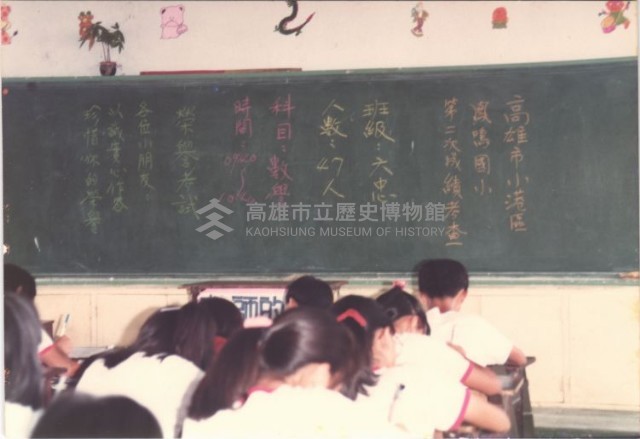 高雄市小港區
鳳鳴國小
第二次成績考查
班級：六忠
人數：47人
科目：數學
時間：0940～
榮譽考試
各位小朋友。
以誠實心作答
珍惜你的榮譽
師的
高雄市立歷史博物館
KAOHSIUNG MUSEUM OF HISTORY